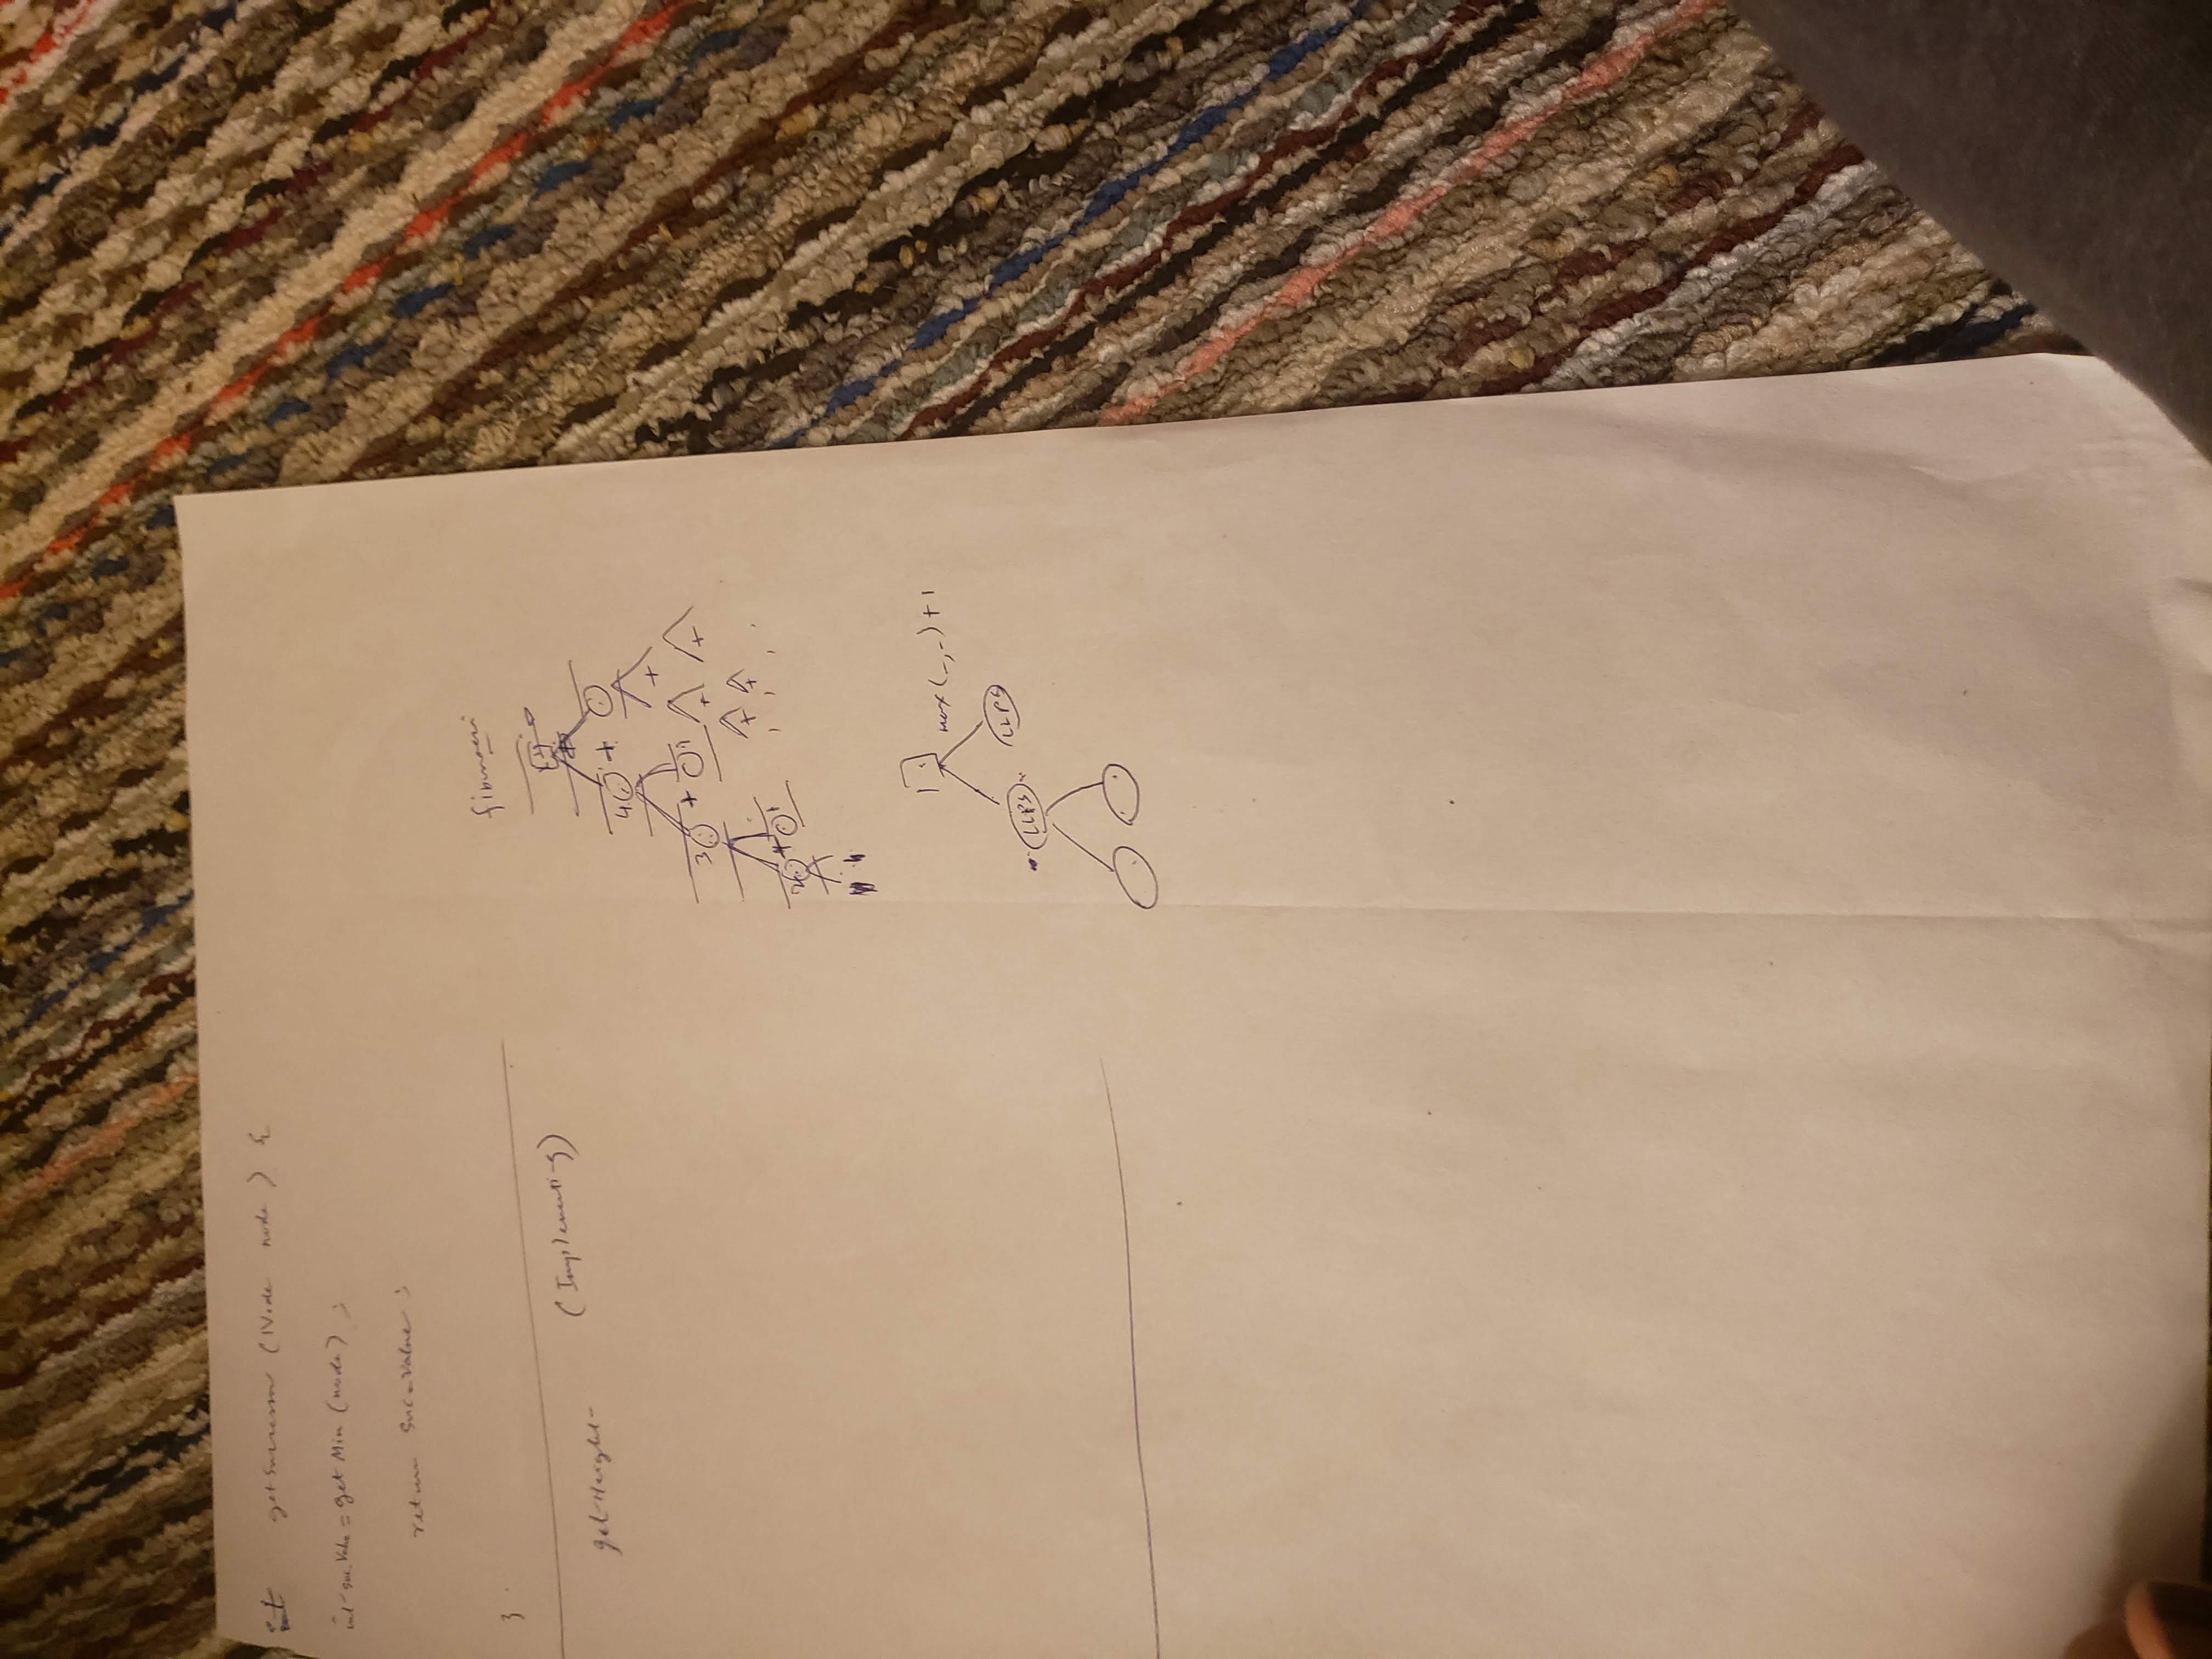 getSuccessor (Node node) {
int suc_Value = get Min (node) ;
return suc_value ;
}
getHeight (Implementing)
fibonacci
4 +
+
3 + 1
+ +
+ +
2 + 1
1 max (_,_) + 1
LLPS
LLPS